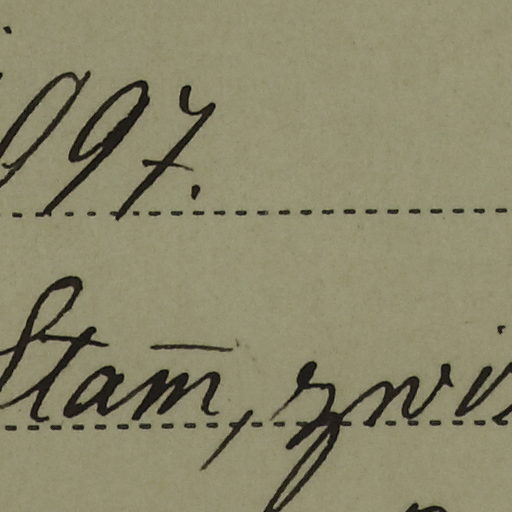 997.
Stam̄, zwi